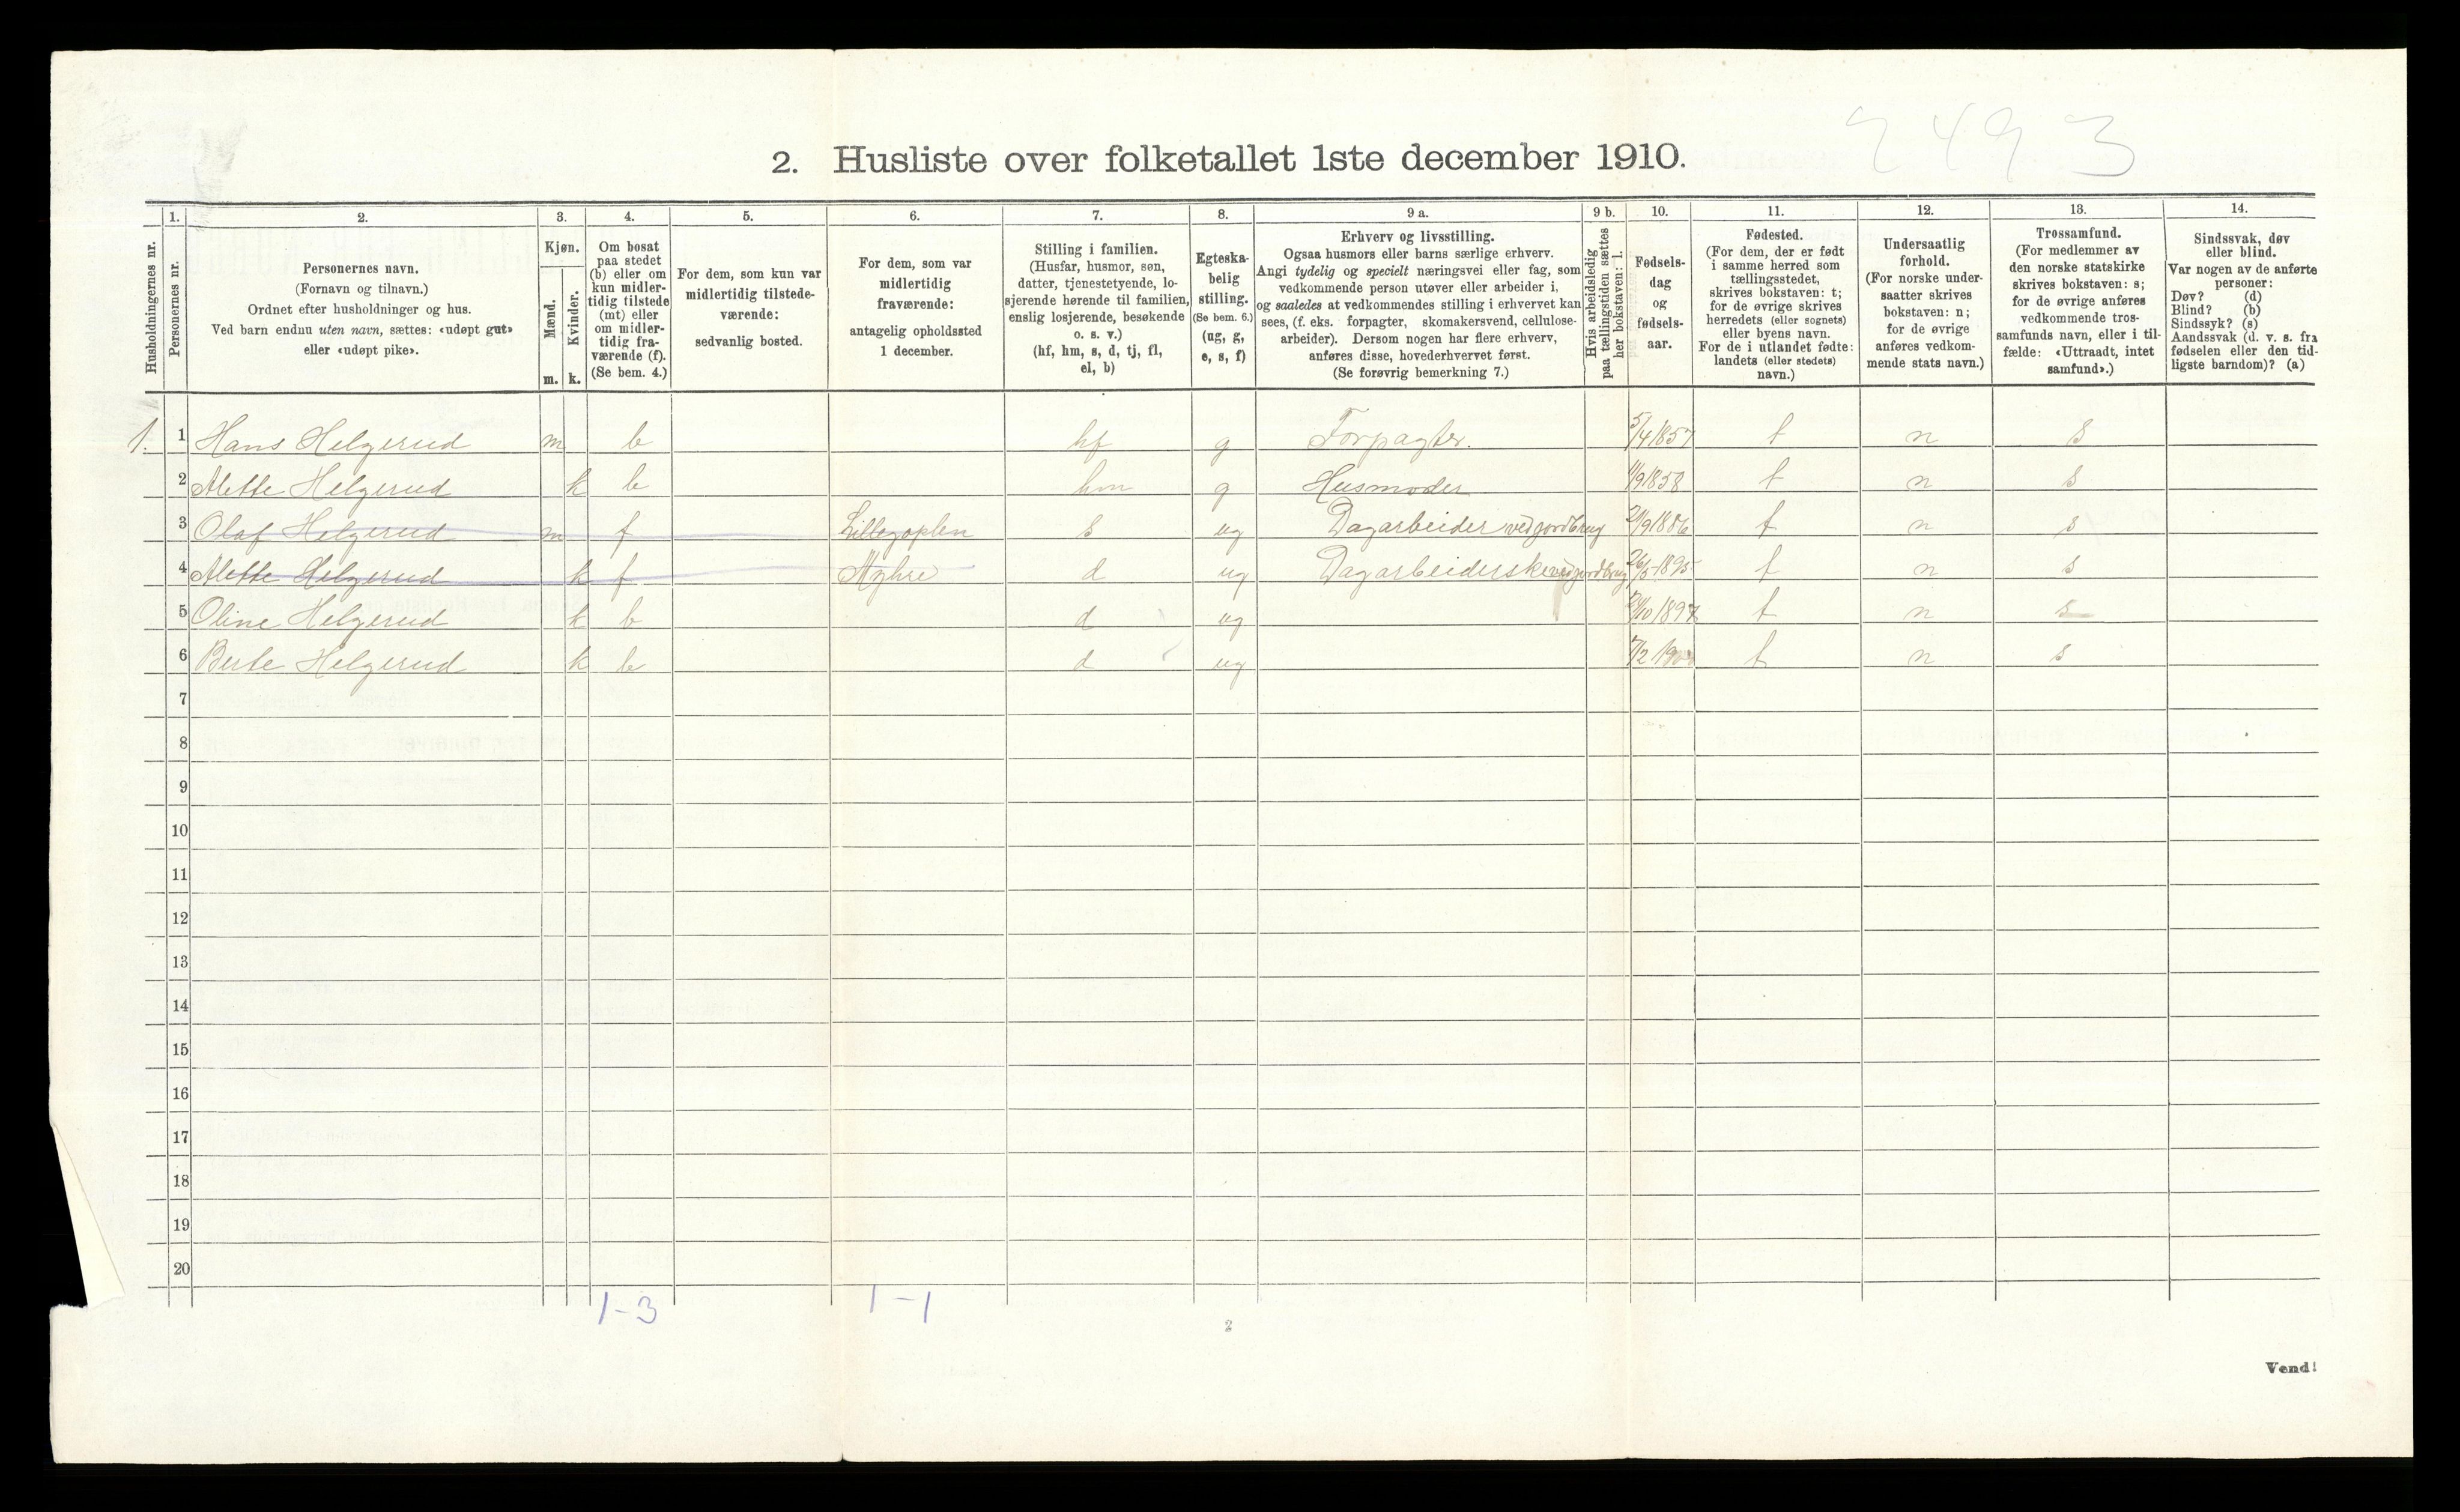 2493
2. Husliste over folketallet 1ste december 1910.
1. 2. 3. 4. 5. 6. 7. 8. 9 a. 9 b. 10. 11. 12. 13. 14.
Husholdningernes nr.
Personernes nr.
Personernes navn.
(Fornavn og tilnavn.)
Ordnet efter husholdninger og hus.
Ved barn endnu uten navn, sættes: «udøpt gut»
eller «udøpt pike».
Kjøn.
Mænd.
Kvinder.
m. k.
Om bosat
paa stedet
(b) eller om
kun midler-
tidig tilstede
(mt) eller
om midler-
tidig fra-
værende (f).
(Se bem. 4.)
For dem, som kun var
midlertidig tilstede-
værende:
sedvanlig bosted.
For dem, som var
midlertidig
fraværende:
antagelig opholdssted
1 december.
Stilling i familien.
(Husfar, husmor, søn,
datter, tjenestetyende, lo-
sjerende hørende til familien,
enslig losjerende, besøkende
o. s. v.)
(hf, hm, s, d, tj, fl,
el, b)
Egteska-
belig
stilling.
(Se bem. 6.)
(ug, g,
e, s, f)
Erhverv og livsstilling.
Ogsaa husmors eller barns særlige erhverv.
Angi tydelig og specielt næringsvei eller fag, som
vedkommende person utøver eller arbeider i,
og saaledes at vedkommendes stilling i erhvervet kan
sees, (f. eks. forpagter, skomakersvend, cellulose-
arbeider). Dersom nogen har flere erhverv,
anføres disse, hovederhvervet først.
(Se forøvrig bemerkning 7.)
Hvis arbeidsledig
paa tællingstiden sættes
her bokstaven: l.
Fødsels-
dag
og
fødsels-
aar.
Fødested.
(For dem, der er født
i samme herred som
tællingsstedet,
skrives bokstaven: t;
for de øvrige skrives
herredets (eller sognets)
eller byens navn.
For de i utlandet fødte:
landets (eller stedets)
navn.)
Undersaatlig
forhold.
(For norske under-
saatter skrives
bokstaven: n;
for de øvrige
anføres vedkom-
mende stats navn.)
Trossamfund.
(For medlemmer av
den norske statskirke
skrives bokstaven: s;
for de øvrige anføres
vedkommende tros-
samfunds navn, eller i til-
fælde: «Uttraadt, intet
samfund».)
Sindssvak, døv
eller blind.
Var nogen av de anførte
personer:
Døv? (d)
Blind? (b)
Sindssyk? (s)
Aandssvak (d. v. s. fra
fødselen eller den tid-
ligste barndom)? (a)
1. 1 Hans Helgerud m b hf g Forpagter. 5/4 1857 t n s
2 Mette Helgerud k b hm g Husmoder 1/9 1858 t n s
3 Olaf Helgerud m f Lillegoplen s ug Dagarbeider ved jordbrug 21/9 1886 t n s
4 Mette Helgerud k f d ug Dagarbeiderske ved jordbrug 26/5 1895 t n s
5 Oline Helgerud k b d ug 1897 t n s
6 Berte Helgerud k b d ug 7/2 t n s
7
8
9
10
11
12
13
14
15
16
17
18
19
20
1-3 1-1
2
Vend!